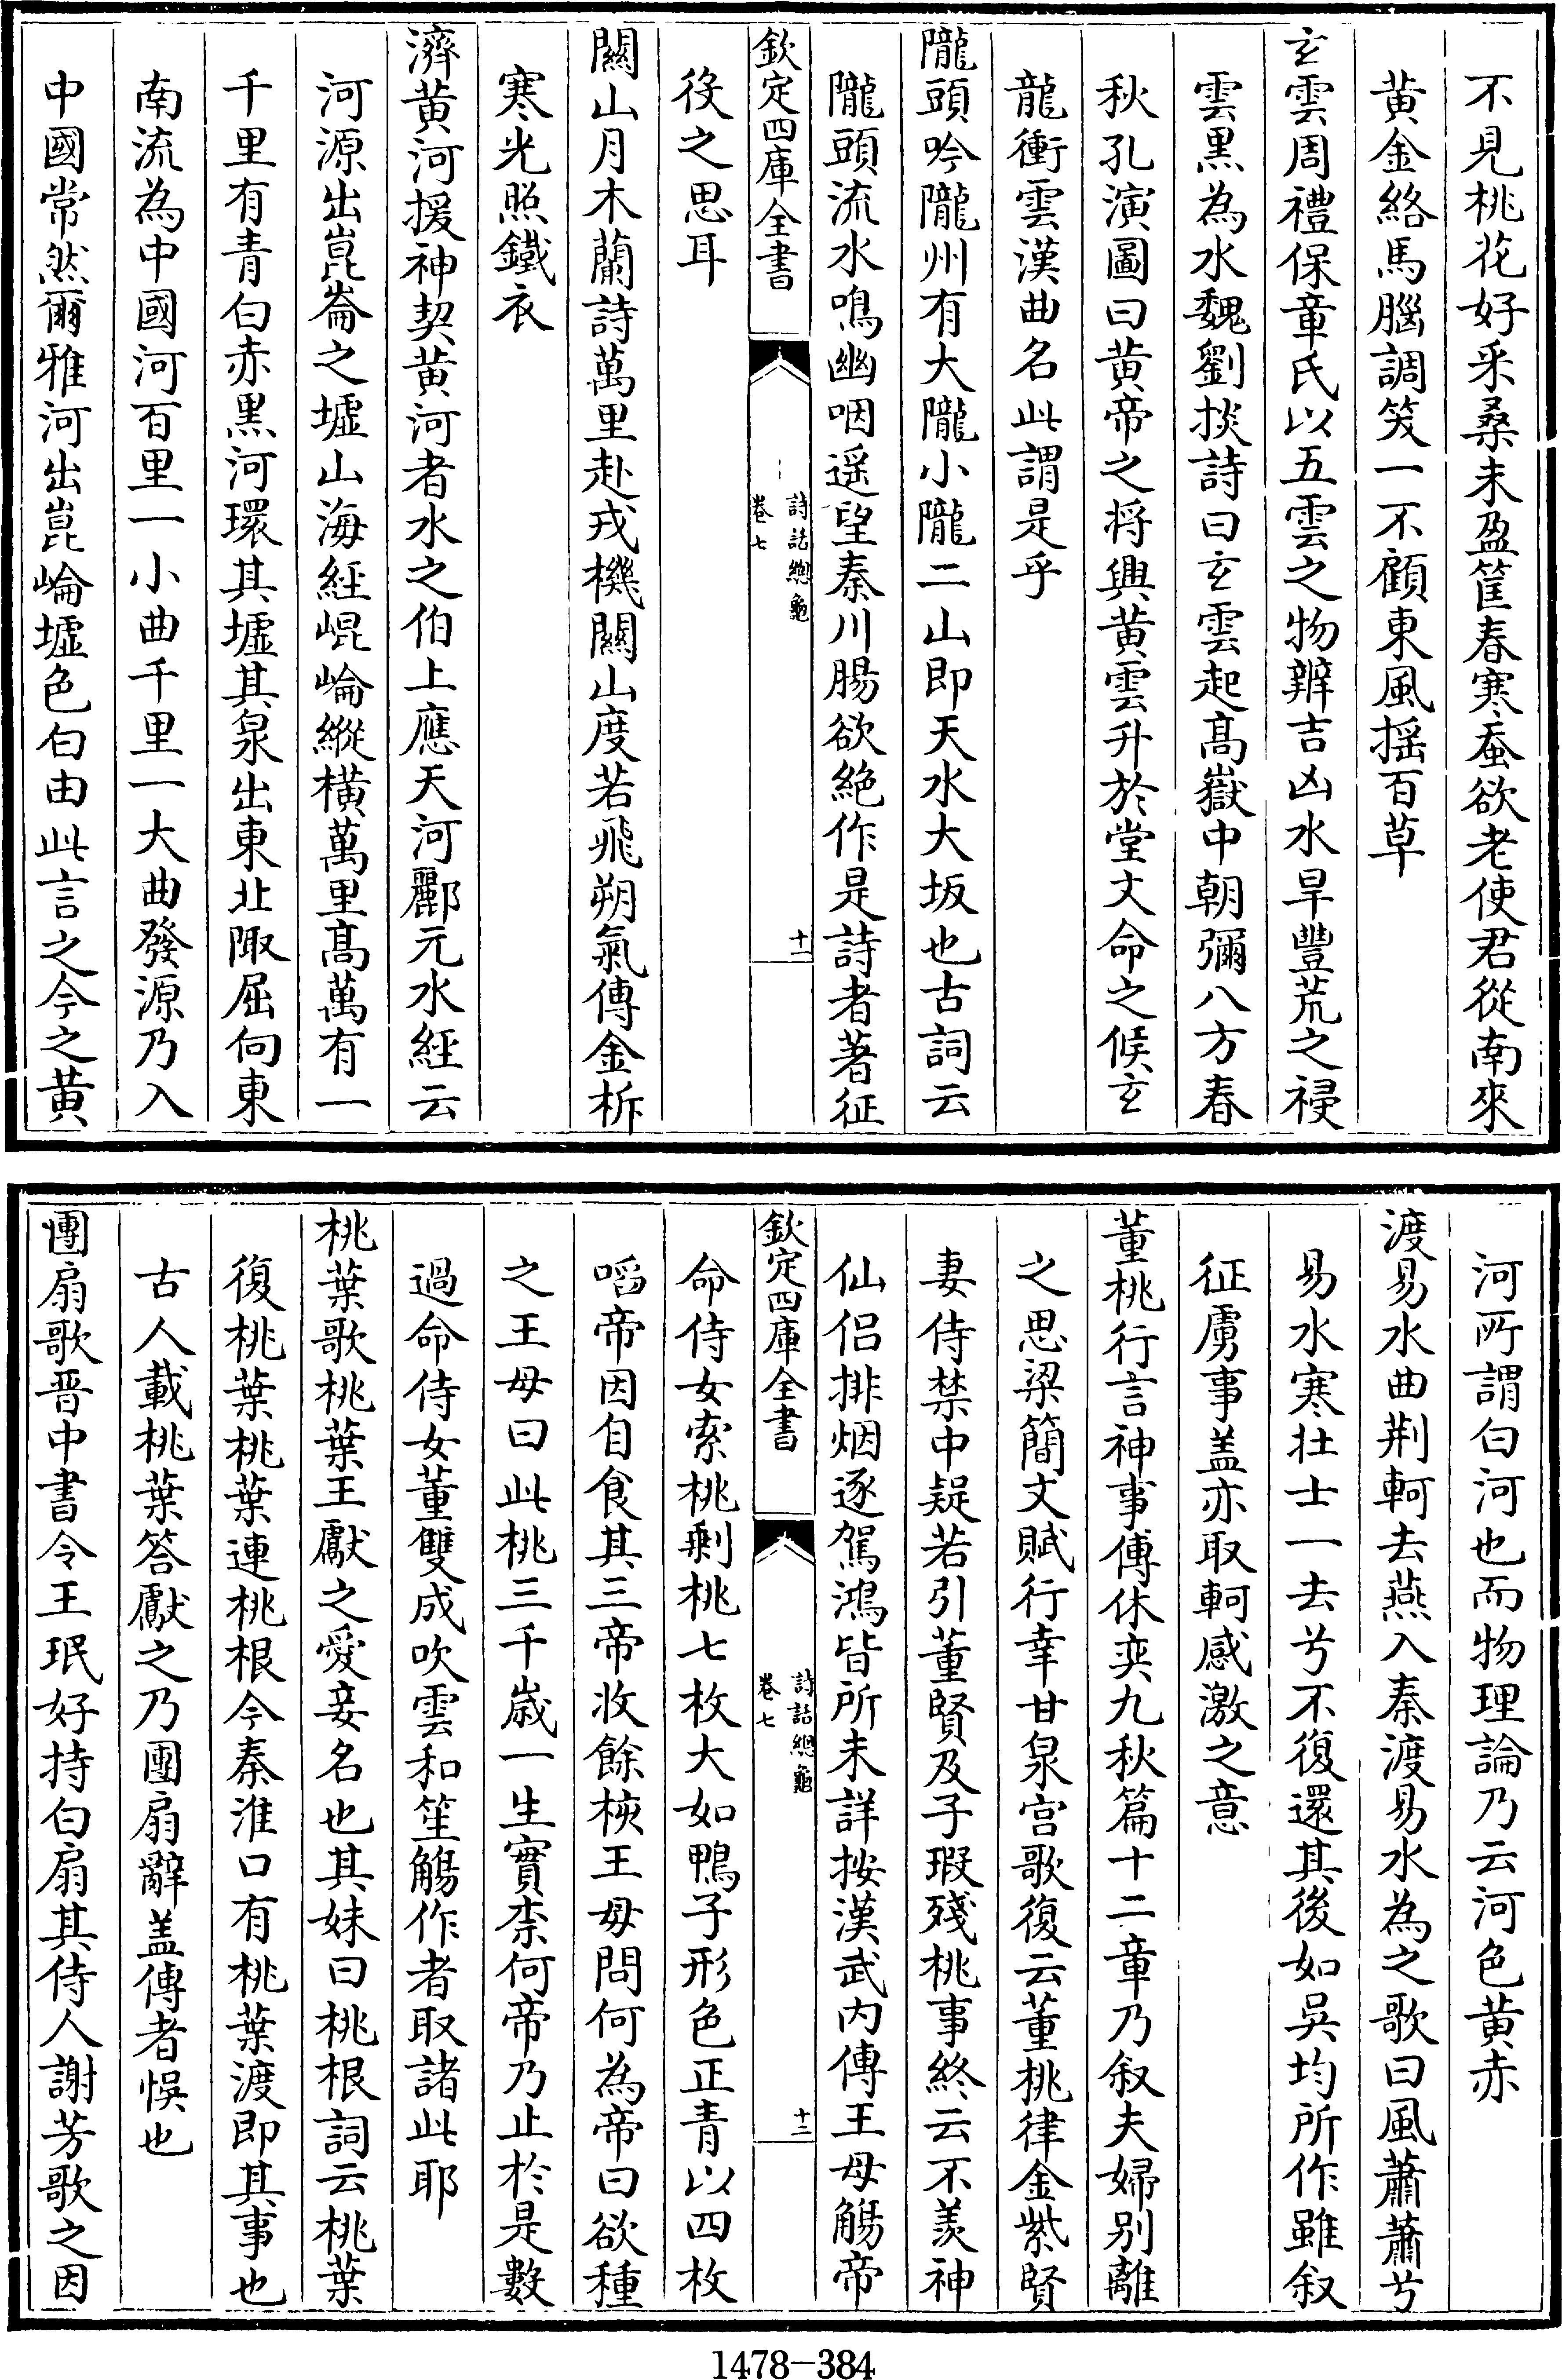 不見桃花好采桑未盈筐春寒蚕欲老使君從南來
黄金絡馬腦調笑一不顧東風揺百草
玄雲周禮保章氏以五雲之物辨吉凶水旱豐荒之祲
雲黒為水魏劉掞詩曰玄雲起髙嶽中朝彌八方春
秋孔演圖曰黄帝之将興黄雲升於堂文命之候玄
龍衝雲漢曲名此謂是乎
隴頭吟隴州有大隴小隴二山即天水大坂也古詞云
隴頭流水鳴幽咽遥望秦川腸欲絶作是詩者著征
欽定四庫全書
詩話總龜
卷七
十一
役之思耳
關山月木蘭詩萬里赴戎機關山度若飛朔氣傳金柝
寒光照鐵衣
濟黄河援神契黄河者水之伯上應天河酈元水經云
河源出崑崙之墟山海經崐崘縱橫萬里髙萬有一
千里有青白赤黒河環其墟其泉出東北陬屈向東
南流為中國河百里一小曲千里一大曲發源乃入
中國常然爾雅河出崑崘墟色白由此言之今之黄
河所謂白河也而物理論乃云河色黄赤
渡易水曲荆軻去燕入秦渡易水為之歌曰風蕭蕭兮
易水寒壮士一去兮不復還其後如吳均所作雖叙
征虜事盖亦取軻感激之意
董桃行言神事傅休奕九秋篇十二章乃叙夫婦别離
之思梁簡文賦行幸甘泉宫歌復云董桃律金紫賢
妻侍禁中疑若引董賢及子瑕殘桃事終云不羨神
仙侣排烟逐駕鴻皆所未詳按漢武内傳王母觴帝
欽定四庫全書
詩話總龜
卷七
十二
命侍女索桃剰桃七枚大如鴨子形色正青以四枚
㗖帝因自食其三帝收餘核王母問何為帝曰欲種
之王母曰此桃三千歳一生實柰何帝乃止於是數
過命侍女董雙成吹雲和笙觴作者取諸此耶
桃葉歌桃葉王獻之愛妾名也其妹曰桃根詞云桃葉
復桃葉桃葉連桃根今秦淮口有桃葉渡即其事也
古人載桃葉答獻之乃團扇辭盖傳者悞也
團扇歌晋中書令王珉好持白扇其侍人謝芳歌之因
1478-384